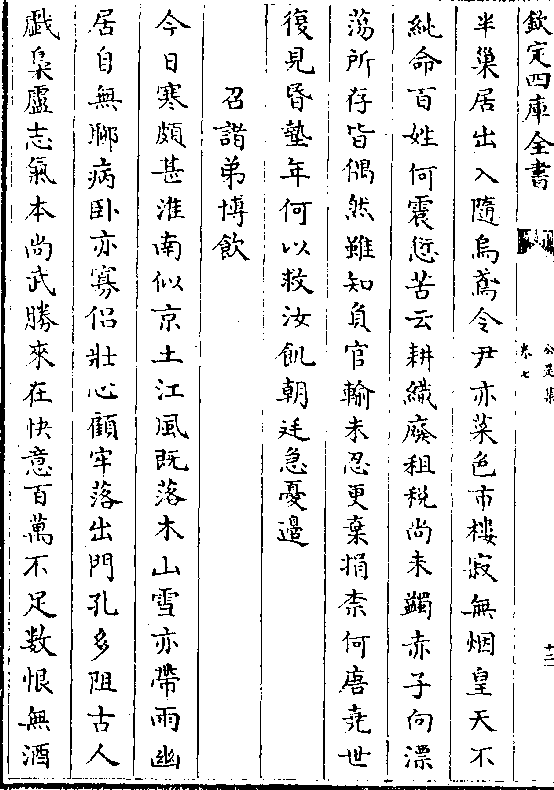 欽定四庫全書
公是集
卷七
十二
半巢居出入隨烏鳶令尹亦菜色市樓寂無烟皇天不
紕命百姓何震愆苦云耕織廢租稅尚未蠲赤子向漂
蕩所存皆偶然雖知負官輸未忍更棄捐柰何唐堯世
復見昏墊年何以救汝飢朝廷急憂邊
召諸弟博飲
今日寒頗甚淮南似京土江風既落木山雪亦帶雨幽
居自無聊病卧亦寡侣壯心顧牢落出門孔多阻古人
戲梟盧志氣本尚武勝來在快意百萬不足數恨無酒